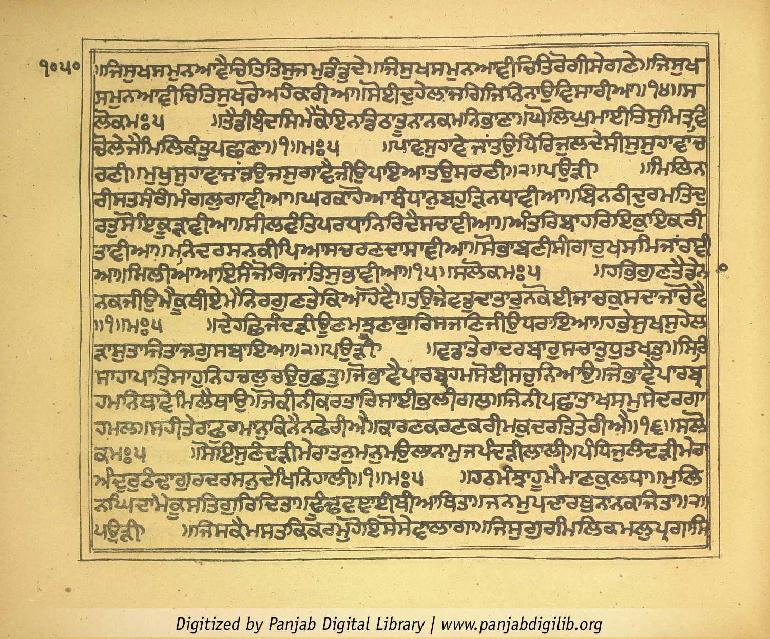 ੧੦੫੦
॥ਜਿਸੁਖਸਮੁਨਆਵੈਚਿਤਿਤਿਸੁਜਮੁਡੰਡੁਦੇ॥ਜਿਸੁਖਸਮੁਨਆਵੀਚਿਤਿਰੋਗੀਸੇਗਣੇ॥ਜਿਸੁਖ
ਸਮੁਨਆਵੀਚਿਤਿਸੁਖਰੋਅਹੰਕਾਰੀਆ॥ਸੋਈਦੁਹੇਲਾਜਗਿਜਿਨਿਨਾਉਵਿਸਾਰੀਆ॥੧੪॥ਸ
ਲੋਕਮਃ੫ ॥ਤੈਡੀਬੰਦਸਿਮੈਕੋਇਨਡਿਠਾਤੂਨਾਨਕਮਨਿਭਾਣਾ॥ਘੋਲਿਘੁਮਾਈਤਿਸੁਮਿਤ੍ਰਵਿ
ਚੋਲੇਜੈਮਿਲਿਕੰਤੁਪਛਾਣਾ॥੧॥ਮਃ੫ ॥ਪਾਵਸੁਹਾਵੇਜਾਂਤਉਧਿਰਿਜੁਲਦੇਸੀਸੁਸੁਹਾਵਾਚ
ਰਣੀ॥ਮੁਖੁਸੁਹਾਵਾਜਾਂਤਉਜਸੁਗਾਵੈਜੀਉਪਇਆਤਉਸਰਣੀ॥੨॥ਪਉੜੀ ॥ਮਿਲਿਨਾ
ਰੀਸਤਸੰਗਿਮੰਗਲੁਗਾਵੀਆ॥ਘਰਕਾਹੋਆਬੰਧਾਨੁਬਹੁੜਿਨਧਾਵੀਆ॥ਬਿਨਠੀਦੁਰਮਤਿਦੁ
ਰਤੁਸੋਇਕੂੜਾਵੀਆ॥ਸੀਲਵੰਤਿਪਰਧਾਨਿਰਿਦੈਸਚਾਵੀਆ॥ਅੰਤਰਿਬਾਹਰਿਇਕੁਇਕਰੀ
ਤਾਵੀਆ॥ਮਨਿਦਰਸਨਕੀਪਿਆਸਚਰਣਦਾਸਾਵੀਆ॥ਸੋਭਾਬਣੀਸੀਗਾਰੁਖਸਮਿਜਾਂਰਾਵੀ
ਆ॥ਮਿਲੀਆਆਇਸੰਜੋਗਿਜਾਂਤਿਸੁਭਾਵੀਆ॥੧੫॥ਸਲੋਕਮਃ੫ ॥ਹਭਿਗੁਣਤੈਡੇਨਾ
ਨਕਜੀਉਮੈਕੂਥੀਏਮੈਨਿਰਗੁਣਤੇਕਿਆਹੋਵੈ॥ਤਉਜੇਵਡੁਦਾਤਾਰੁਨਕੋਈਜਾਚਕੁਸਦਾਜਾਚੋਵੈ
॥੧॥ਮਃ੫ ॥ਦੇਹਛਿਜੰਦੜੀਊਣਮਝੂਣਾਗੁਰਿਸਜਣਿਜੀਉਧਰਾਇਆ॥ਹਭੇਸੁਖਸੁਹੇਲ
ੜਾਸੁਤਾਜਿਤਾਜਗੁਸਬਾਇਆ॥੨॥ਪਉੜੀ ॥ਵਡਾਤੇਰਾਦਰਬਾਰੁਸਚਾਤੁਧੁਤਖਤੁ॥ਸਿਰਿ
ਸਾਹਾਪਾਤਿਸਾਹੁਨਿਹਚਲੁਚਉਰੁਛਤੁ॥ਜੋਭਾਵੈਪਾਰਬ੍ਰਹਮਸੋਈਸਚੁਨਿਆਉ॥ਜੇਭਾਵੈਪਾਰਬ੍ਰ
ਹਮਨਿਥਾਵੇਮਿਲੈਥਾਉ॥ਜੋਕੀਨੀਕਰਤਾਰਿਸਾਈਭਲੀਗਲ॥ਜਿਨੀਪਛਾਤਾਖਸਮੁਸੇਦਰਗਾ
ਹਮਲ॥ਸਹੀਤੇਰਾਫੁਰਮਾਨੁਕਿਨੈਨਫੇਰੀਐ॥ਕਾਰਣਕਰਣਕਰੀਮਕੁਦਰਤਿਤੇਰੀਐ॥੧੬॥ਸਲੋ
ਕਮਃ੫ ॥ਸੋਇਸੁਣੰਦੜੀਮੇਰਾਤਨੁਮਨੁਮਉਲਾਨਾਮੁਜਪੰਦੜੀਲਾਲੀ॥ਪੰਧਿਜੁਲੰਦੜੀਮੇਰਾ
ਅੰਦਰੁਠੰਢਾਗੁਰਦਰਸਨੁਦੇਖਿਨਿਹਾਲੀ॥੧॥ਮਃ੫ ॥ਹਠਮੰਝਾਹੂਮੈਮਾਣਕੁਲਧਾ॥ਮੁਲਿ
ਨਘਿਦਾਮੈਕੂਸਤਿਗੁਰਿਦਿਤਾ॥ਢੂੰਢਵਞਾਈਥੀਆਥਿਤਾ॥ਜਨਮੁਪਦਾਰਥੁਨਾਨਕਜਿਤਾ॥੨॥
ਪਉੜੀ ॥ਜਿਸਕੈਮਸਤਕਿਕਰਮੁਹੋਇਸੋਸੇਵਾਲਾਗਾ॥ਜਿਸੁਗੁਰਮਿਲਿਕਮਲੁਪ੍ਰਗਾਸਿ
Digitized by Panjab Digital Library | www.panjabdigilib.org